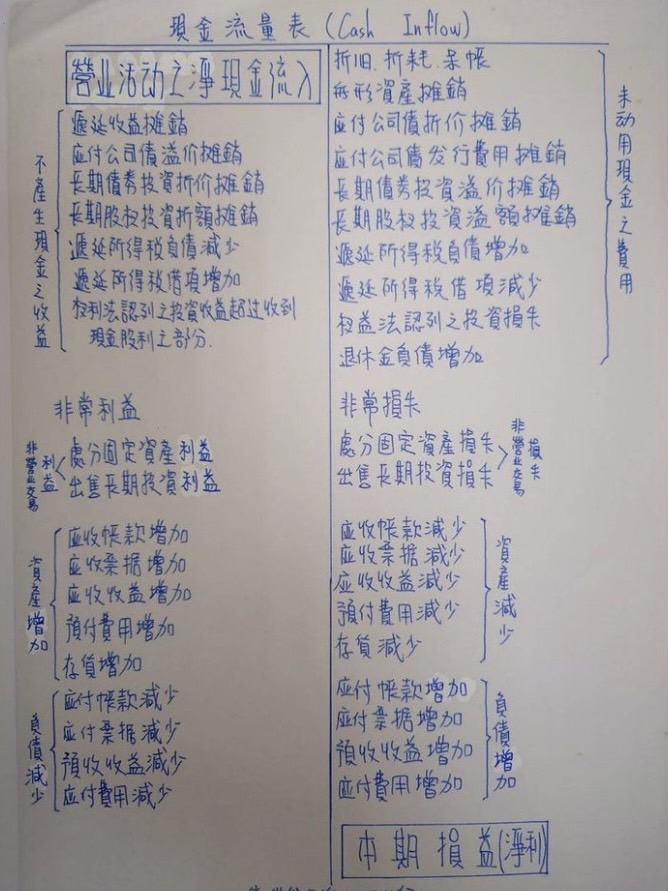 現金流量表 (Cash Inflow)
營业活动之淨現金流入
不產生現金之收益
遞延收益攤銷
应付公司債溢价攤銷
長期債券投資折价攤銷
長期股权投資折額攤銷
遞延所得税負債減少
遞延所得税借項增加
权利法認列之投資收益起过收到
現金股利之部分.
非常利益
非營业交易
利益
處分固定資產利益
出售長期投資利益
資產增加
应收帳款增加
应收票据增加
应收收益增加
預付費用增加
存貨增加
負債減少
应付帳款減少
应付票据減少
預收收益減少
应付費用減少
折旧.折耗.呆帳
無形資產攤銷
应付公司債折价攤銷
应付公司債发行費用攤銷
長期債券投資溢价攤銷
長期股权投資溢額攤銷
遞延所得税負債增加
遞延所得税借項減少
权益法認列之投資損失
退休金負債增加
未动用現金之費用
非常損失
處分固定資產損失
出售長期投資損失
非營业交易
損失
应收帳款減少
应收票据減少
应收收益減少
預付費用減少
存貨減少
資產減少
应付帳款增加
应付票据增加
預收收益增加
应付費用增加
負債增加
本期損益(淨利)